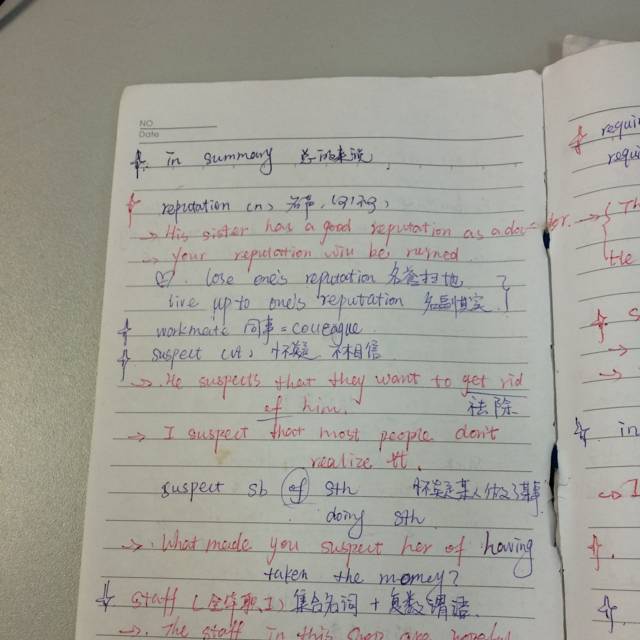 NO
Date
in summary 总的来说
reputation (n) 名声,
→ His sister has a good reputation as a doctor.
→ Your reputation will be ruined.
lose one's reputation 名誉扫地
live up to one's reputation 名副其实
workmate 同事 = colleague
suspect (vt) 怀疑 不相信
→ He suspects that they want to get rid
of him. 祛除
→ I suspect that most people don't
realize it.
suspect sb of sth 怀疑某人做了某事
doing sth.
→ What made you suspect her of having
taken the momey?
staff (全体职工) 集合名词 + 复数谓语.
→ The staff in this are
requi
requi
Th
He
S
in
I